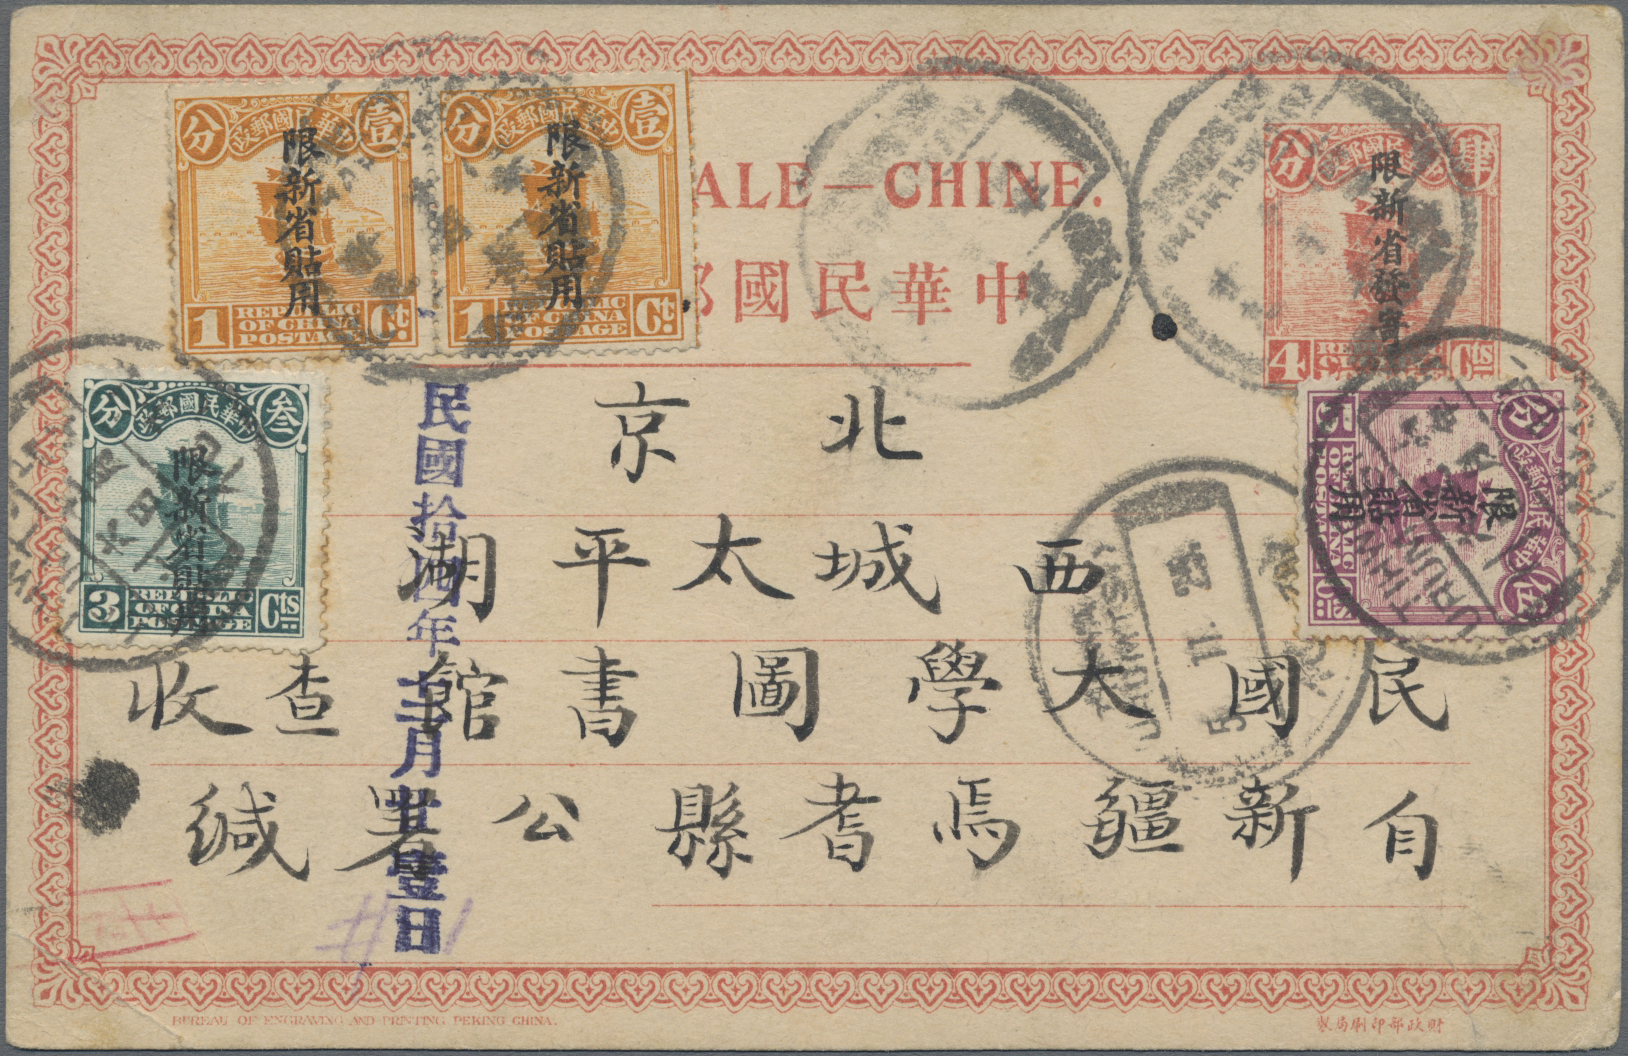 ALE—CHINE.
中華民國郵
中華民國郵政
壹 分
限新省貼用
1 REPUBLIC OF CHINA POSTAGE Ct.
中華民國郵政
壹 分
限新省貼用
1 REPUBLIC OF CHINA POSTAGE Ct.
中華民國郵政
肆 分
限新省發寄
4 Cts
中華民國郵政
叁 分
限新省貼用
3 REPUBLIC OF CHINA POSTAGE Cts
中華民國郵政
伍 分
限新省貼用
5
TIHWA
URUM
民國拾四年十二月廿壹日
北京
西城太平湖
民國大學圖書館查收
自新疆焉耆縣公署緘
BUREAU OF ENGRAVING AND PRINTING, PEKING CHINA.
財政部印刷局製